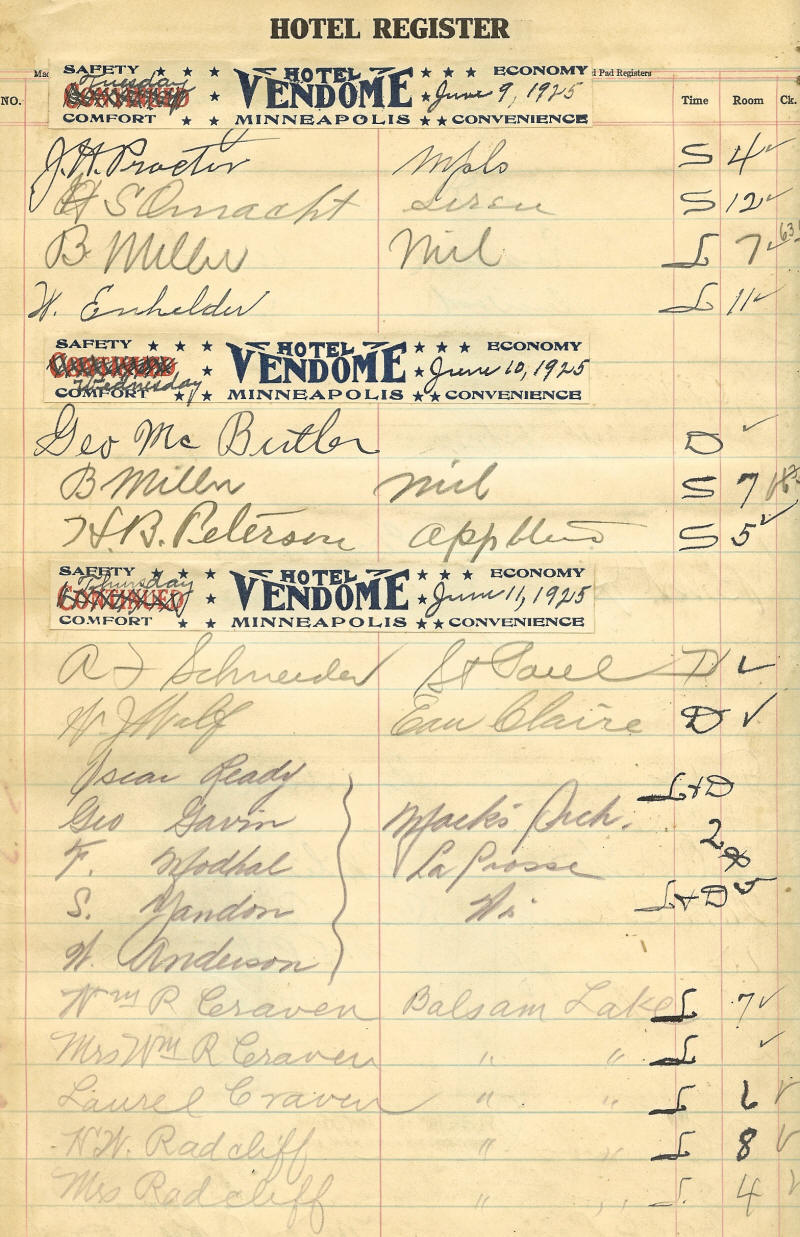 HOTEL REGISTER
d Pad Registers
NO. Time Room Ck.
SAFETY HOTEL ECONOMY
Tuesday
CONTINUED VENDOME June 9, 1925
COMFORT MINNEAPOLIS CONVENIENCE
J. H. Proctor Mpls S 4 ✓
S 12 ✓
B Miller Mil L 7 ✓
W. Enhelder L 11 ✓
SAFETY HOTEL ECONOMY
CONTINUED VENDOME June 10, 1925
Wednesday
COMFORT MINNEAPOLIS CONVENIENCE
Geo Mc Butler D ✓
B Miller Mil S 7
H. B. Peterson S 5 ✓
SAFETY HOTEL ECONOMY
Thursday
CONTINUED VENDOME June 11, 1925
COMFORT MINNEAPOLIS CONVENIENCE
Schneider St Paul D ✓
Eau Claire D ✓
Oscar Ready L+D
Geo Gavin Mack's Orch. 2
F. Modhal La Crosse
S. Yandon Wi L+D 5
W. Anderson
Wm R Craven Balsam Lake L 7 ✓
Mrs Wm R Craven " " L ✓
Laurel Craven " " L 6 ✓
H.W. Radcliff " " L 8 ✓
Mrs Radcliff " " L 4 ✓